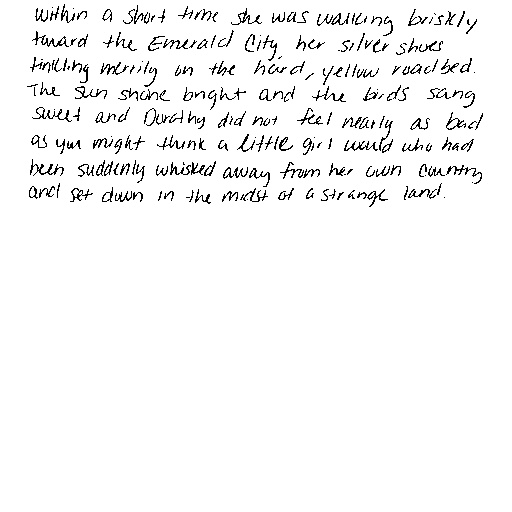 Within a short time she was walking briskly
toward the Emerald City, her silver shoes
tinkling merrily on the hard, yellow roadbed.
The sun shone bright and the birds sang
sweet and Dorothy did not feel nearly as bad
as you might think a little girl would who had
been suddenly whisked away from her own country
and set down in the midst of a strange land.